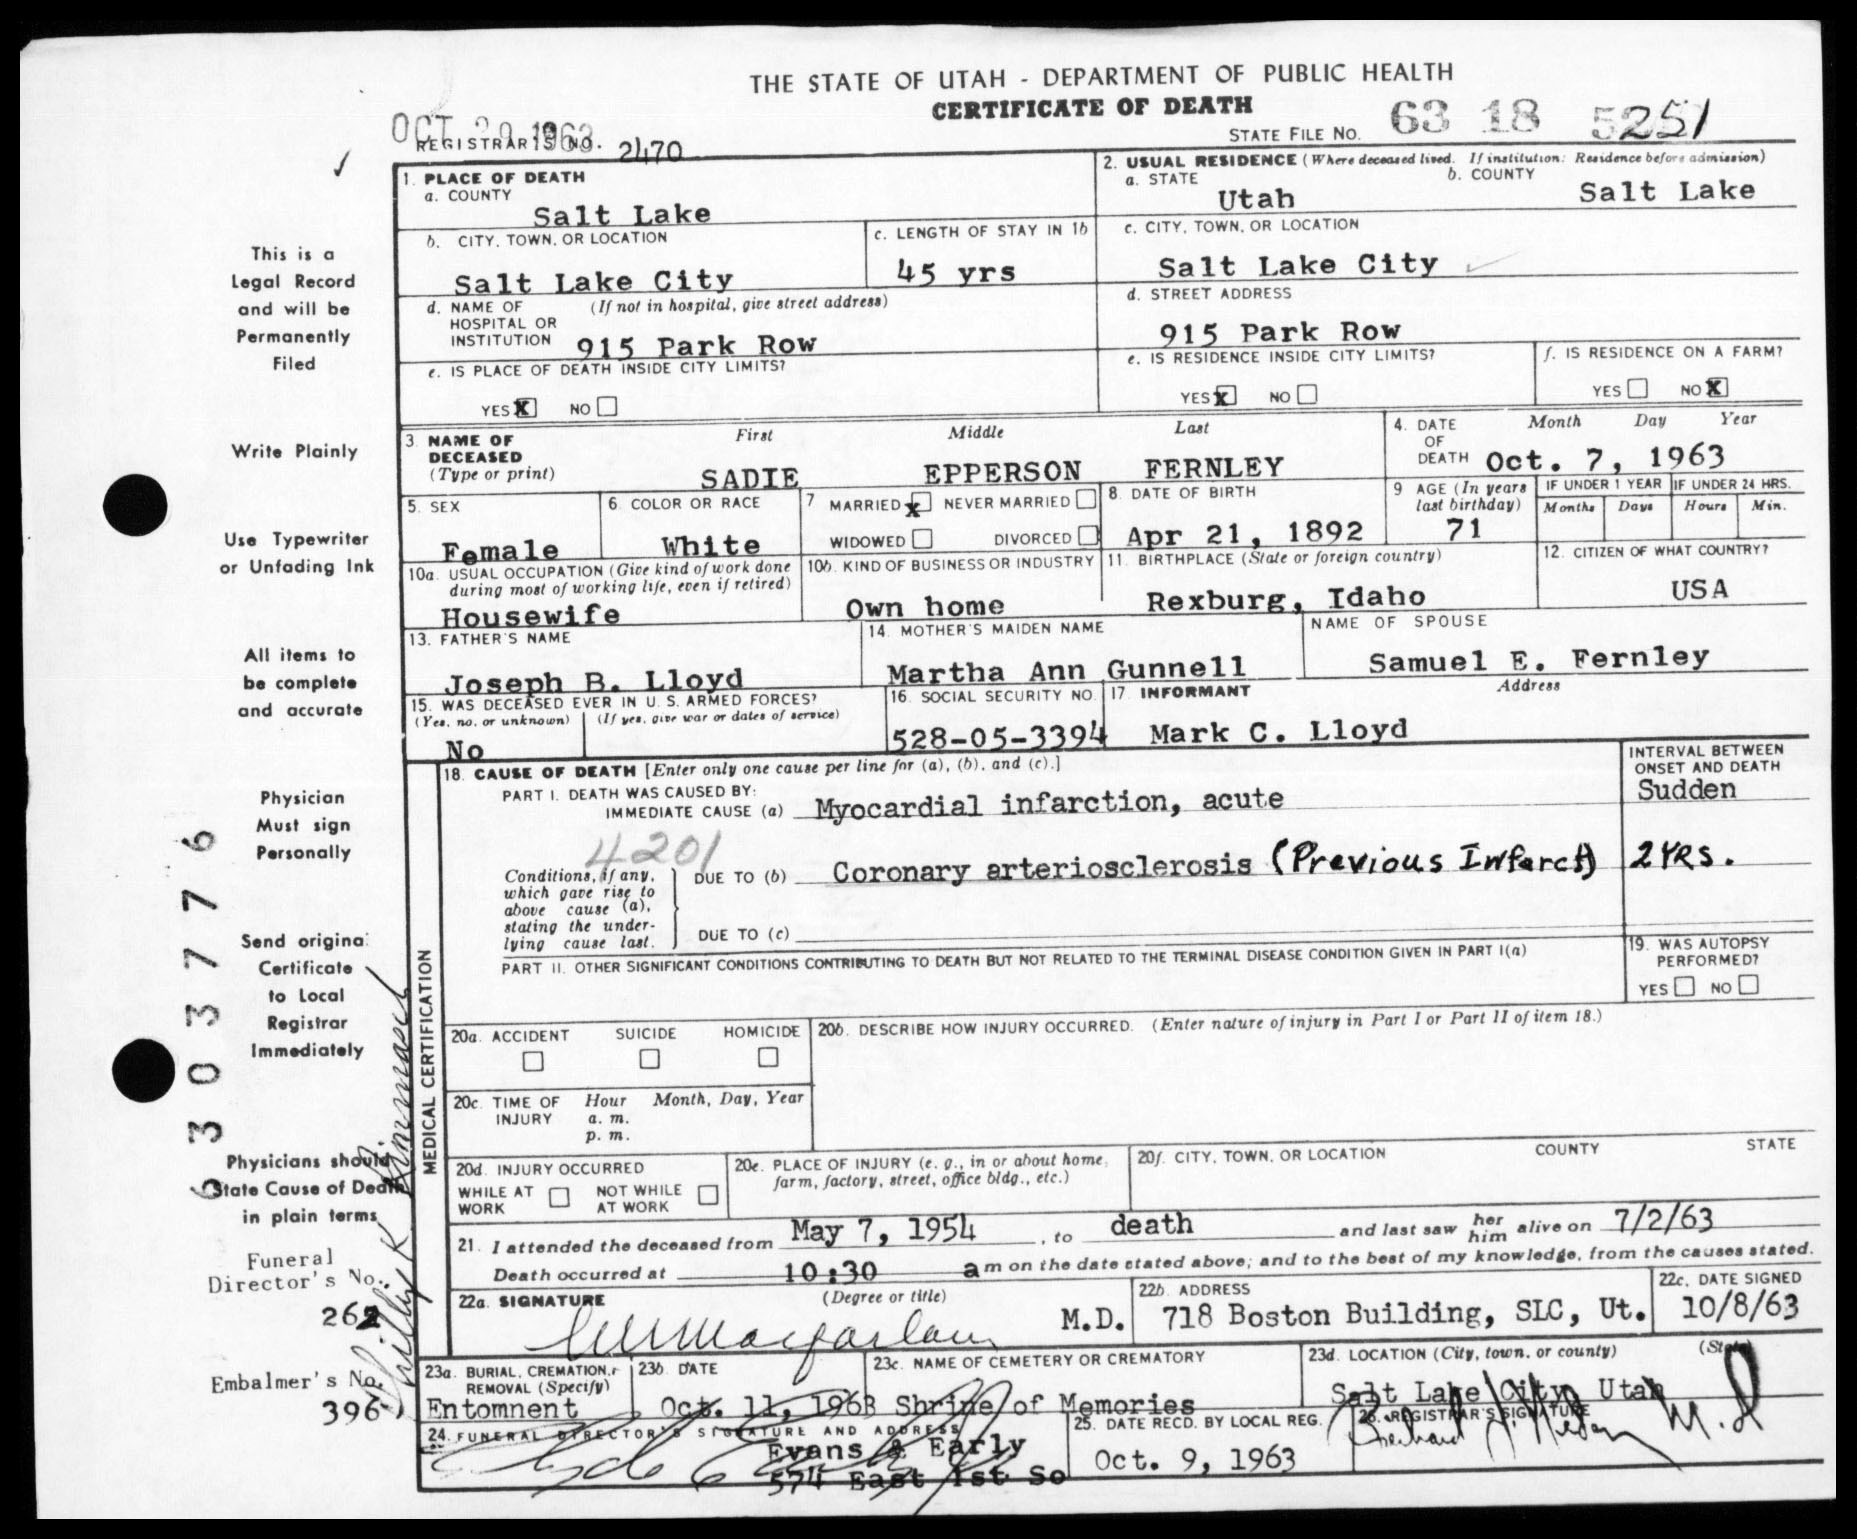 THE STATE OF UTAH - DEPARTMENT OF PUBLIC HEALTH
CERTIFICATE OF DEATH
OCT 29 1963
REGISTRAR'S NO. 2470
STATE FILE NO. 63 18 5251
✓
This is a
Legal Record
and will be
Permanently
Filed
Write Plainly
Use Typewriter
or Unfading Ink
All items to
be complete
and accurate
Physician
Must sign
Personally
Send original
Certificate
to Local
Registrar
Immediately
Physicians should
State Cause of Death
in plain terms
Funeral
Director's No.
262
Embalmer's No.
396
6303776
1. PLACE OF DEATH
a. COUNTY
Salt Lake
b. CITY, TOWN, OR LOCATION
Salt Lake City
c. LENGTH OF STAY IN 1b
45 yrs
d. NAME OF (If not in hospital, give street address)
HOSPITAL OR
INSTITUTION 915 Park Row
e. IS PLACE OF DEATH INSIDE CITY LIMITS?
YES X NO
2. USUAL RESIDENCE (Where deceased lived. If institution: Residence before admission)
a. STATE Utah
b. COUNTY Salt Lake
c. CITY, TOWN, OR LOCATION
Salt Lake City ✓
d. STREET ADDRESS
915 Park Row
e. IS RESIDENCE INSIDE CITY LIMITS?
YES X NO
f. IS RESIDENCE ON A FARM?
YES NO X
3. NAME OF DECEASED (Type or print)
First Middle Last
SADIE EPPERSON FERNLEY
4. DATE OF DEATH
Month Day Year
Oct. 7, 1963
5. SEX
Female
6. COLOR OR RACE
White
7 MARRIED X NEVER MARRIED
WIDOWED DIVORCED
8. DATE OF BIRTH
Apr 21, 1892
9 AGE (In years last birthday)
71
IF UNDER 1 YEAR
Months Days
IF UNDER 24 HRS.
Hours Min.
10a. USUAL OCCUPATION (Give kind of work done
during most of working life, even if retired)
Housewife
10b. KIND OF BUSINESS OR INDUSTRY
Own home
11. BIRTHPLACE (State or foreign country)
Rexburg, Idaho
12. CITIZEN OF WHAT COUNTRY?
USA
13. FATHER'S NAME
Joseph B. Lloyd
14. MOTHER'S MAIDEN NAME
Martha Ann Gunnell
NAME OF SPOUSE
Samuel E. Fernley
15. WAS DECEASED EVER IN U. S. ARMED FORCES?
(Yes, no, or unknown) (If yes, give war or dates of service)
No
16. SOCIAL SECURITY NO.
528-05-3394
17. INFORMANT Address
Mark C. Lloyd
MEDICAL CERTIFICATION
18. CAUSE OF DEATH [Enter only one cause per line for (a), (b), and (c).]
INTERVAL BETWEEN
ONSET AND DEATH
PART I. DEATH WAS CAUSED BY:
IMMEDIATE CAUSE (a) Myocardial infarction, acute
Sudden
4201
Conditions, if any,
which gave rise to
above cause (a),
stating the under-
lying cause last.
DUE TO (b) Coronary arteriosclerosis (Previous Infarct) 2 YRS.
DUE TO (c)
PART II. OTHER SIGNIFICANT CONDITIONS CONTRIBUTING TO DEATH BUT NOT RELATED TO THE TERMINAL DISEASE CONDITION GIVEN IN PART I(a)
19. WAS AUTOPSY
PERFORMED?
YES NO
20a. ACCIDENT SUICIDE HOMICIDE
20b. DESCRIBE HOW INJURY OCCURRED. (Enter nature of injury in Part I or Part II of item 18.)
20c. TIME OF INJURY
Hour Month, Day, Year
a. m.
p. m.
20d. INJURY OCCURRED
WHILE AT WORK NOT WHILE AT WORK
20e. PLACE OF INJURY (e. g., in or about home,
farm, factory, street, office bldg., etc.)
20f. CITY, TOWN, OR LOCATION COUNTY STATE
21. I attended the deceased from May 7, 1954, to death and last saw her him alive on 7/2/63
Death occurred at 10:30 a m on the date stated above; and to the best of my knowledge, from the causes stated.
22a. SIGNATURE (Degree or title)
M.D.
22b. ADDRESS
718 Boston Building, SLC, Ut.
22c. DATE SIGNED
10/8/63
23a. BURIAL, CREMATION,
REMOVAL (Specify)
Entomnent
23b. DATE
Oct. 11, 1963
23c. NAME OF CEMETERY OR CREMATORY
Shrine of Memories
23d. LOCATION (City, town, or county) (State)
Salt Lake City, Utah
24. FUNERAL DIRECTOR'S SIGNATURE AND ADDRESS
Evans & Early
574 East 1st So
25. DATE RECD. BY LOCAL REG.
Oct. 9, 1963
26. REGISTRAR'S SIGNATURE